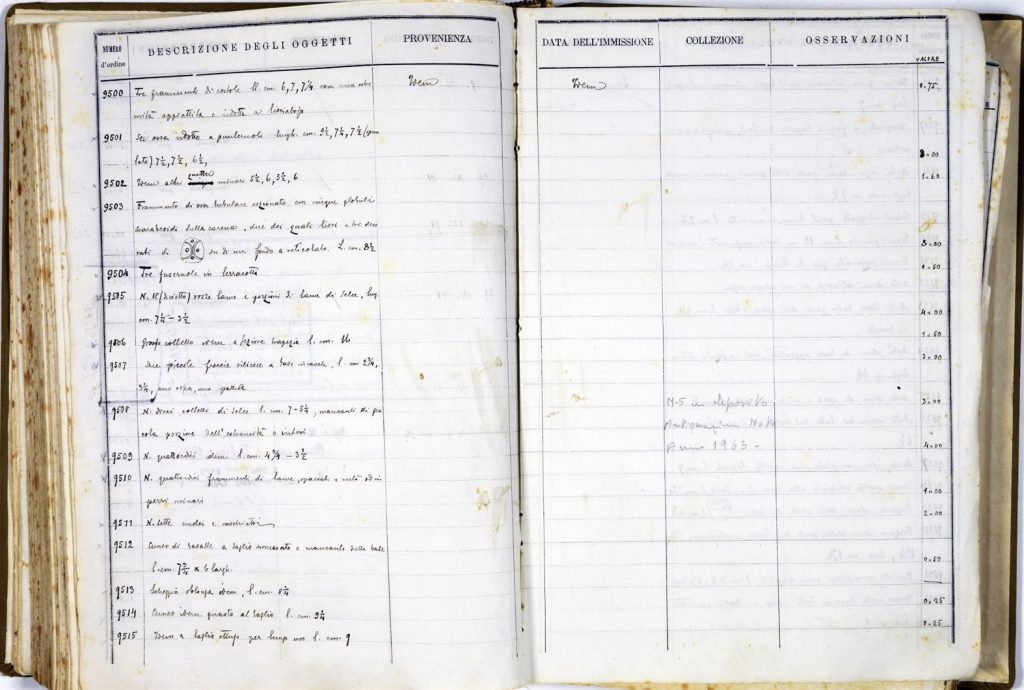 NUMERO d'ordine DESCRIZIONE DEGLI OGGETTI PROVENIENZA DATA DELL'IMMISSIONE COLLEZIONE OSSERVAZIONI
VALORE
9500 Tre frammenti di costole l. cm. 6, 7, 7¼ con una estre Idem Idem 0.75
mità appiattita e ridotta a lisciatojo
9501 Sei ossa ridotte a punteruoli lungh. cm. 9½, 7¼, 7½
7½, 7½, 6½, 3.00
9502 Idem altri quattro minori 5½, 6, 5½, 6 1.60
9503 Frammento di osso tubulare sezionato con cinque globuli
scaraboidi sulla carena, due dei quali lisci e tre deco
rati di su di un fondo a reticolato. L. cm. 8½ 3.00
9504 Tre fuseruole in terracotta 0.50
9505 N. 18 (diciotto) rozze lame e porzioni di lame di selce, lung.
cm. 7½ - 3½ 4.00
9506 Grosso coltello idem a sezione trapezia l. cm. 16 1.50
9507 Due piccole freccie silicee a base incavata, l. cm 2¾,
una rosa, una gialla
9508 N. dieci coltelli di selce l. cm. 7 - 5½, mancanti di pic N-5 in deposito 3.00
cola porzione dell'estremità o interi Antiquarium Noto
Anno 1963 -
9509 N. quattordici idem l. cm. 4¾ - 3½ 4.00
9510 N. quattordici frammenti di lame, spaccati a metà od in
pezzi minori 1.00
9511 N. sette nuclei e raschiatoi 2.00
9512 Cuneo di basalte a taglio smussato e mancante della base
l. cm. 7¾ × 6 largh. 0.50
9513 Scheggia oblunga idem, l. cm. 8½
9514 Cuneo idem guasto al taglio l. cm. 9½ 0.25
9515 Idem a taglio ottuso per lungo uso l. cm. 9 0.25